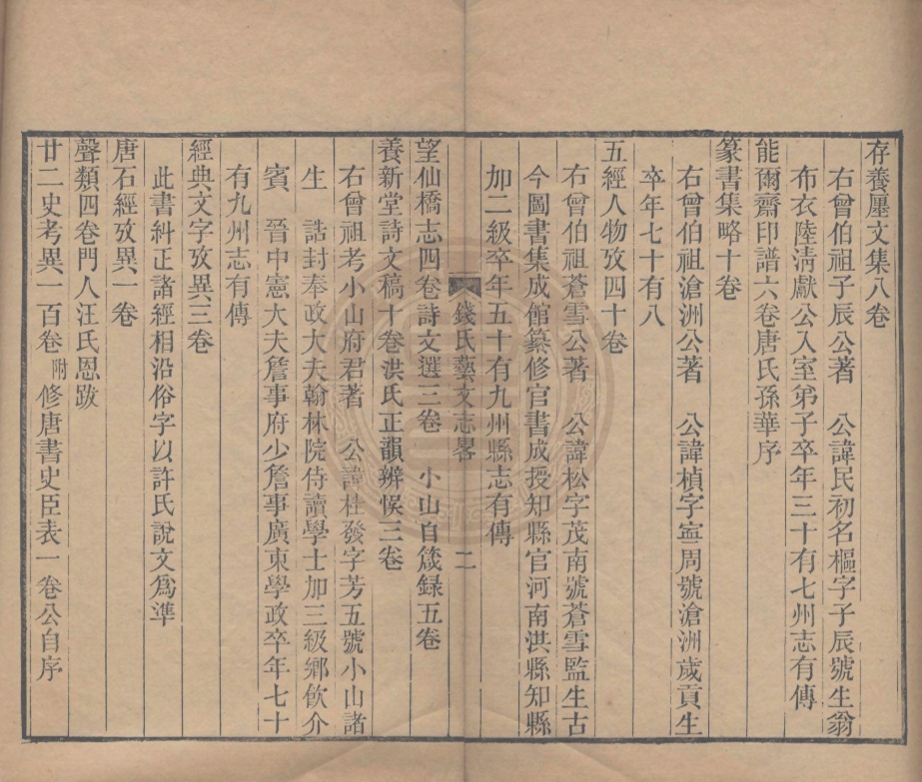 存養廛文集八卷
右曾伯祖子辰公著　公諱民初名樞字子辰號生翁
布衣陸淸獻公入室弟子卒年三十有七州志有傳
能爾齋印譜六卷唐氏孫華序
篆書集略十卷
右曾伯祖滄洲公著　公諱楨字寍周號滄洲歲貢生
卒年七十有八
五經人物攷四十卷
右曾伯祖蒼雪公著　公諱松字茂南號蒼雪監生古
今圖書集成館纂修官書成授知縣官河南淇縣知縣
加二級卒年五十有九州縣志有傳
錢氏藝文志畧　二
望仙橋志四卷詩文選三卷　小山自箴録五卷
養新堂詩文稿十卷洪氏正韻辨悞三卷
右曾祖考小山府君著　公諱桂發字芳五號小山諸
生　誥封奉政大夫翰林院侍讀學士加三級鄉飮介
賓　晉中憲大夫詹事府少詹事廣東學政卒年七十
有九州志有傳
經典文字攷異三卷
此書糾正諸經相沿俗字以許氏說文爲準
唐石經攷異一卷
聲類四卷門人汪氏恩跋
廿二史考異一百卷附修唐書史臣表一卷公自序